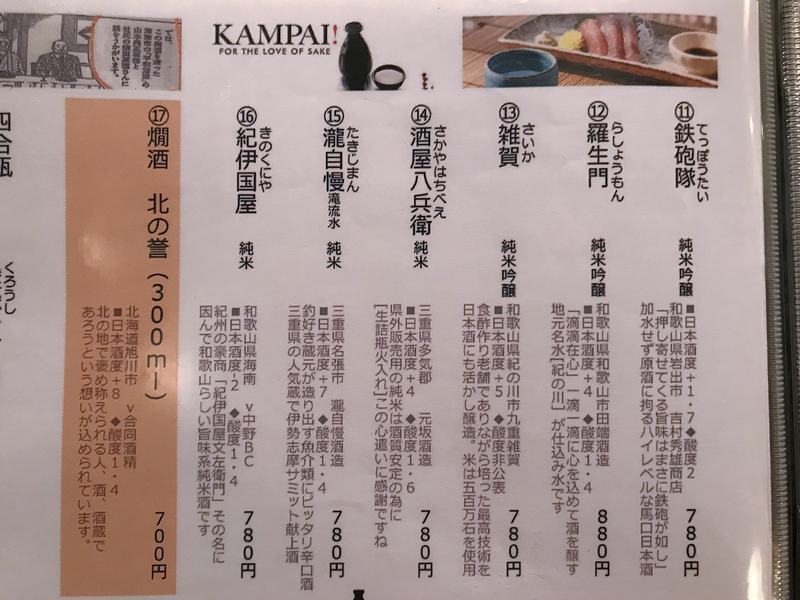 KAMPAI!
FOR THE LOVE OF SAKE
⑪鉄砲隊
てっぽうたい
純米吟醸
■日本酒度+1・7◆酸度2
和歌山県岩出市 吉村秀雄商店
「押し寄せてくる旨味はまさに鉄砲が如し」
加水せず原酒に拘るハイレベルな馬口日本酒
780円
⑫羅生門
らしょうもん
純米吟醸
和歌山県和歌山市田端酒造
■日本酒度+4 ◆酸度1・4
「滴滴在心」一滴一滴に心を込めて酒を醸す
地元名水「紀の川」が仕込み水です
880円
⑬雑賀
さいか
純米吟醸
和歌山県紀の川市九重雑賀
■日本酒度+5 ◆酸度非公表
食酢作り老舗でありながら培った最高技術を
日本酒にも活かし醸造。米は五百万石を使用
780円
⑭酒屋八兵衛
さかやはちべえ
純米
三重県多気郡 元坂酒造
■日本酒度+4 ◆酸度1・6
県外販売用の純米は酒質安定の為に
[生詰瓶火入れ]この心遣いに感謝ですね
780円
⑮瀧自慢 滝流水
たきじまん
純米
三重県名張市 瀧自慢酒造
■日本酒度+7 ◆酸度1・4
釣好き蔵元が造り出す魚介類にピッタリ辛口酒
三重県の人気蔵で伊勢志摩サミット献上酒
780円
⑯紀伊国屋
きのくにや
純米
和歌山県海南 v中野BC
■日本酒度-2 ◆酸度1・4
紀州の豪商「紀伊国屋文左衛門」その名に
因んで和歌山らしい旨味系純米酒です
780円
⑰燗酒 北の誉(300ml)
北海道旭川市 v合同酒精
■日本酒度+8 ◆酸度1・4
北の地で褒め称えられる人、酒、酒蔵で
あろうという想いが込められています。
700円
四合瓶
くろうし